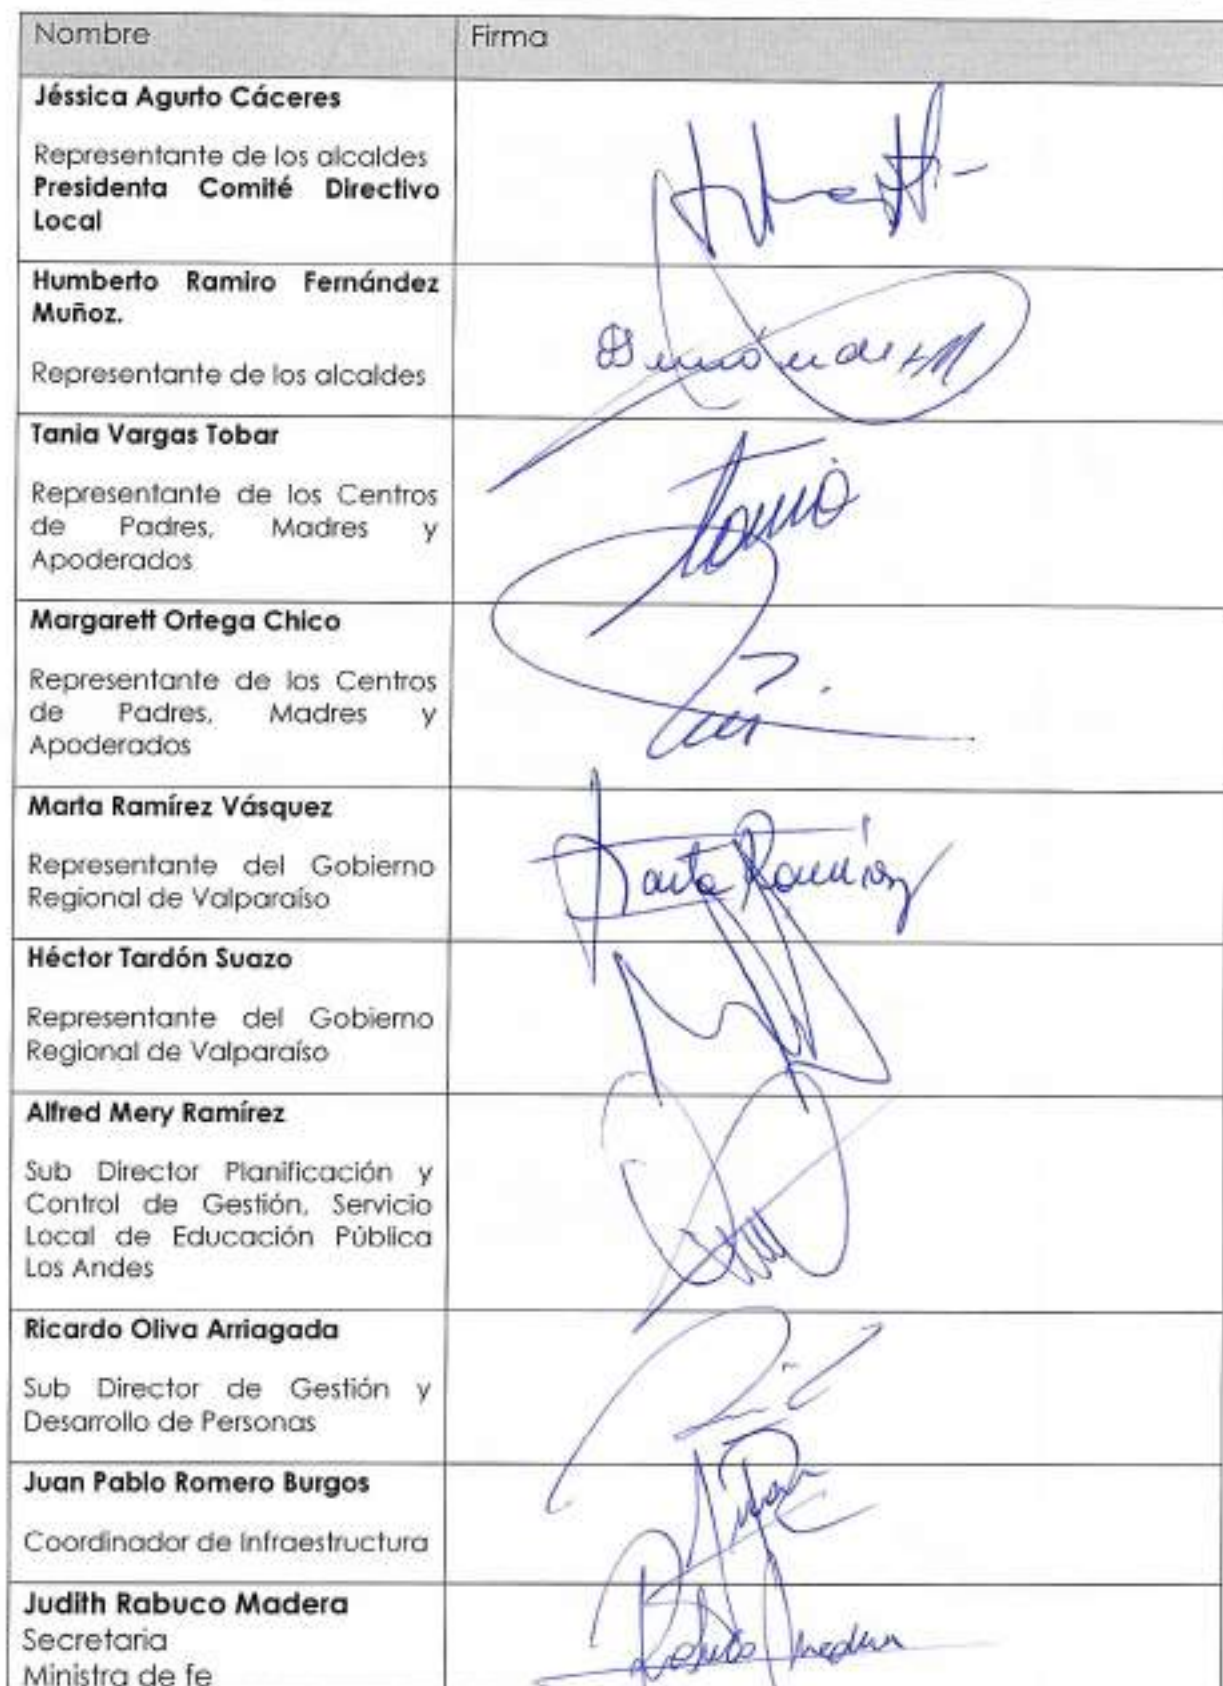 Nombre Firma
Jéssica Agurto Cáceres
Representante de los alcaldes
Presidenta Comité Directivo
Local
Humberto Ramiro Fernández
Muñoz.
Representante de los alcaldes
Tania Vargas Tobar
Representante de los Centros
de Padres, Madres y
Apoderados
Tania
Margarett Ortega Chico
Representante de los Centros
de Padres, Madres y
Apoderados
Marta Ramírez Vásquez
Representante del Gobierno
Regional de Valparaíso
Marta Ramírez
Héctor Tardón Suazo
Representante del Gobierno
Regional de Valparaíso
Alfred Mery Ramírez
Sub Director Planificación y
Control de Gestión, Servicio
Local de Educación Pública
Los Andes
Ricardo Oliva Arriagada
Sub Director de Gestión y
Desarrollo de Personas
Juan Pablo Romero Burgos
Coordinador de Infraestructura
Judith Rabuco Madera
Secretaria
Ministra de fe